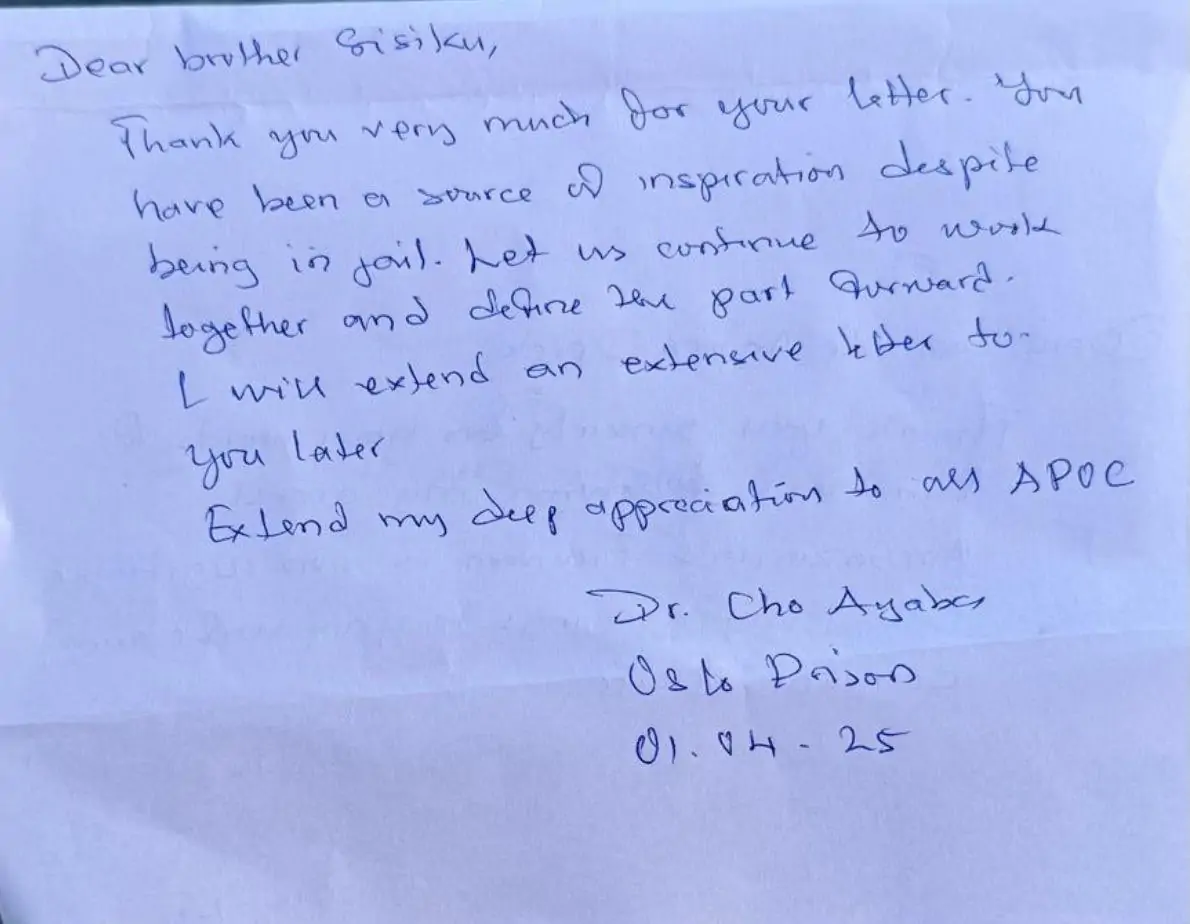 Dear brother Sisiku,
Thank you very much for your letter. You
have been a source of inspiration despite
being in jail. Let us continue to work
together and define the part forward.
I will extend an extensive letter to
you later
Extend my deep appreciation to all APOC
Dr. Cho Ayaba
Oslo Prison
01.04-25